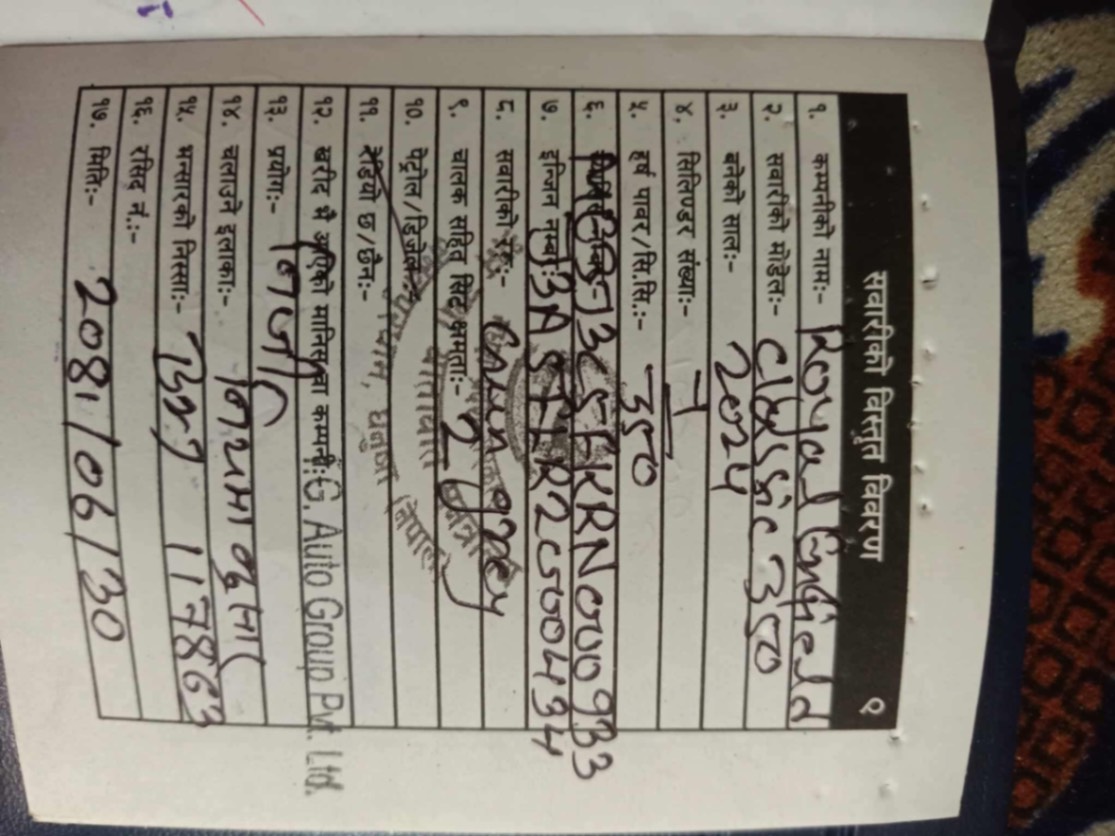 सवारीको विस्तृत विवरण १
१. कम्पनीको नाम:- Royal Enfield
२. सवारीको मोडेल:- classic 350
३. बनेको साल:- 2024
४. सिलिण्डर संख्या:- १
५. हर्ष पावर/सि.सि.:- 350
६.
७. इन्जिन नम्बर:-
८. सवारीको रङ:- Gun grey
९. चालक सहित सिट क्षमता:- 2
१०. पेट्रोल/डिजेल:-
११. रेडियो छ/छैन:-
१२. खरीद गै आएको मानिस वा कम्पनी: G. Auto Group Pvt. Ltd.
१३. प्रयोग:- निजी
१४. चलाउने इलाका:-
१५. भन्सारको निस्सा:- 117863
१६. रसिद नं.:-
१७. मिति:- 2081/06/30